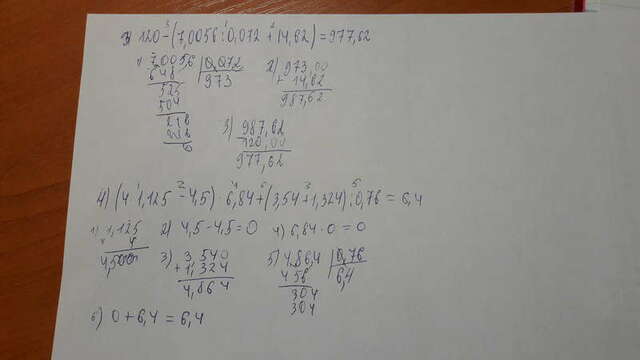 3) 120-(7,0056:0,072+14,62)=977,62
1) 7,0056 | 0,072
648 973
525
504
216
216
0
2) 973,00
+ 14,62
987,62
3) 987,62
- 120,00
977,62
4) (4·1,125-4,5)·6,84+(3,54+1,324):0,76=6,4
1) 1,125
× 4
4,500
2) 4,5-4,5=0
4) 6,84·0=0
3) 3,540
+ 1,324
4,864
5) 4,86,4 | 0,76
456 6,4
304
304
6) 0+6,4=6,4